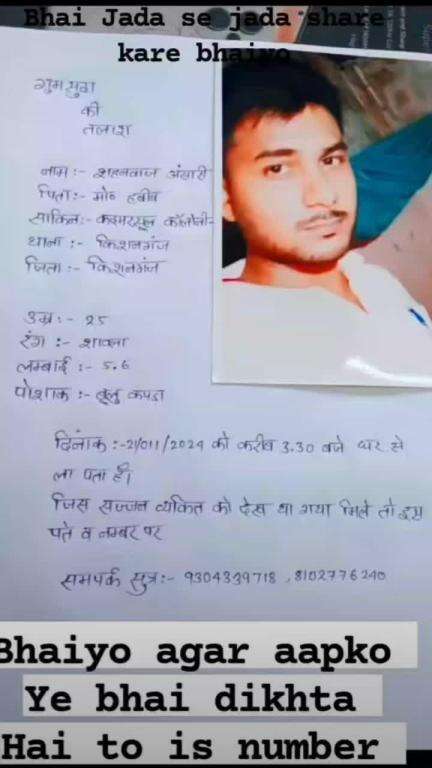 Bhai Jada se jada share
kare bhaiyo
गुमसुदा
की
तलाश
नाम :- शहनवाज अंसारी
पिता :- मो० हबीब
साकिन :-
थाना :- किशनगंज
जिला :- किशनगंज
उम्र :- 25
रंग :- शावला
लम्बाई :- 5.6
पोशाक :- बुलु कपडा
दिनांक :- 21/011/2024 को करीब 3.30 बजे घर से
ला पता है।
जिस सज्जन व्यकित को देखा या गया मिले तो इस
पते व नम्बर पर
समपर्क सुत्र :- 9304339718 , 8102776240
Bhaiyo agar aapko
Ye bhai dikhta
Hai to is number